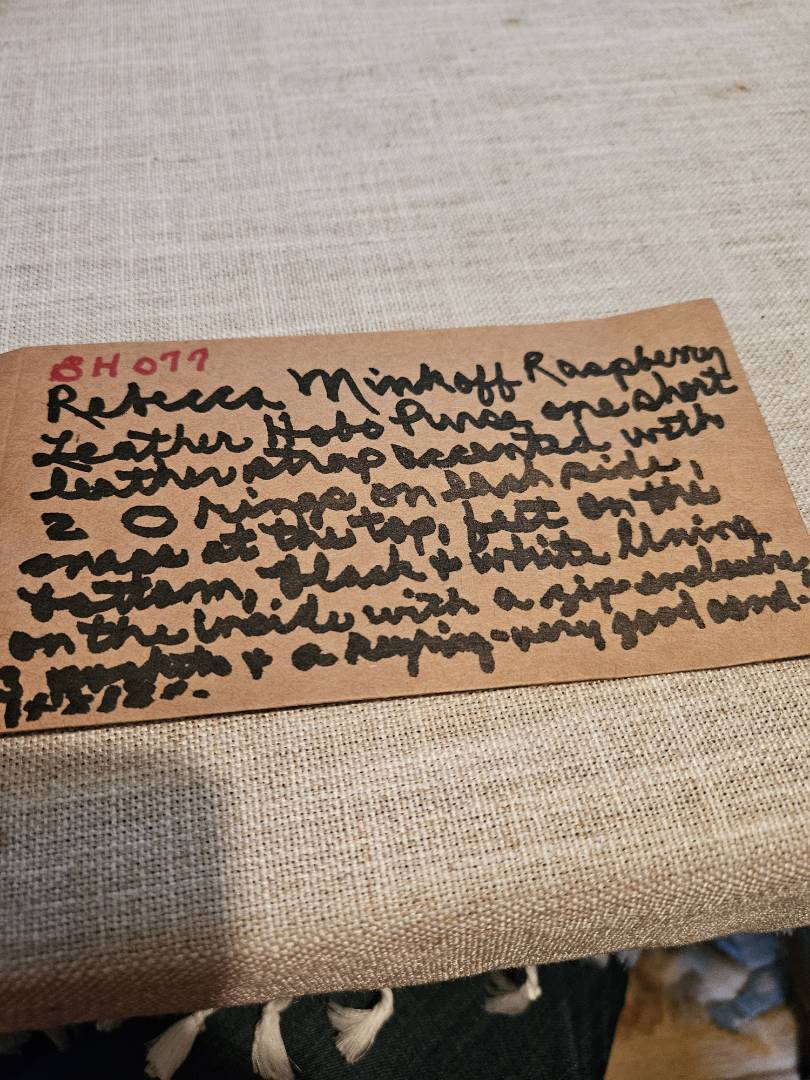 BH 077
Rebecca Minkoff Raspberry
Leather Hobo Purse, one short
leather strap accented with
2 O rings on each side,
snaps at the top, feet on the
bottom, black & white lining
on the inside with a zip enclosure,
3 & a keyring - very good cond.